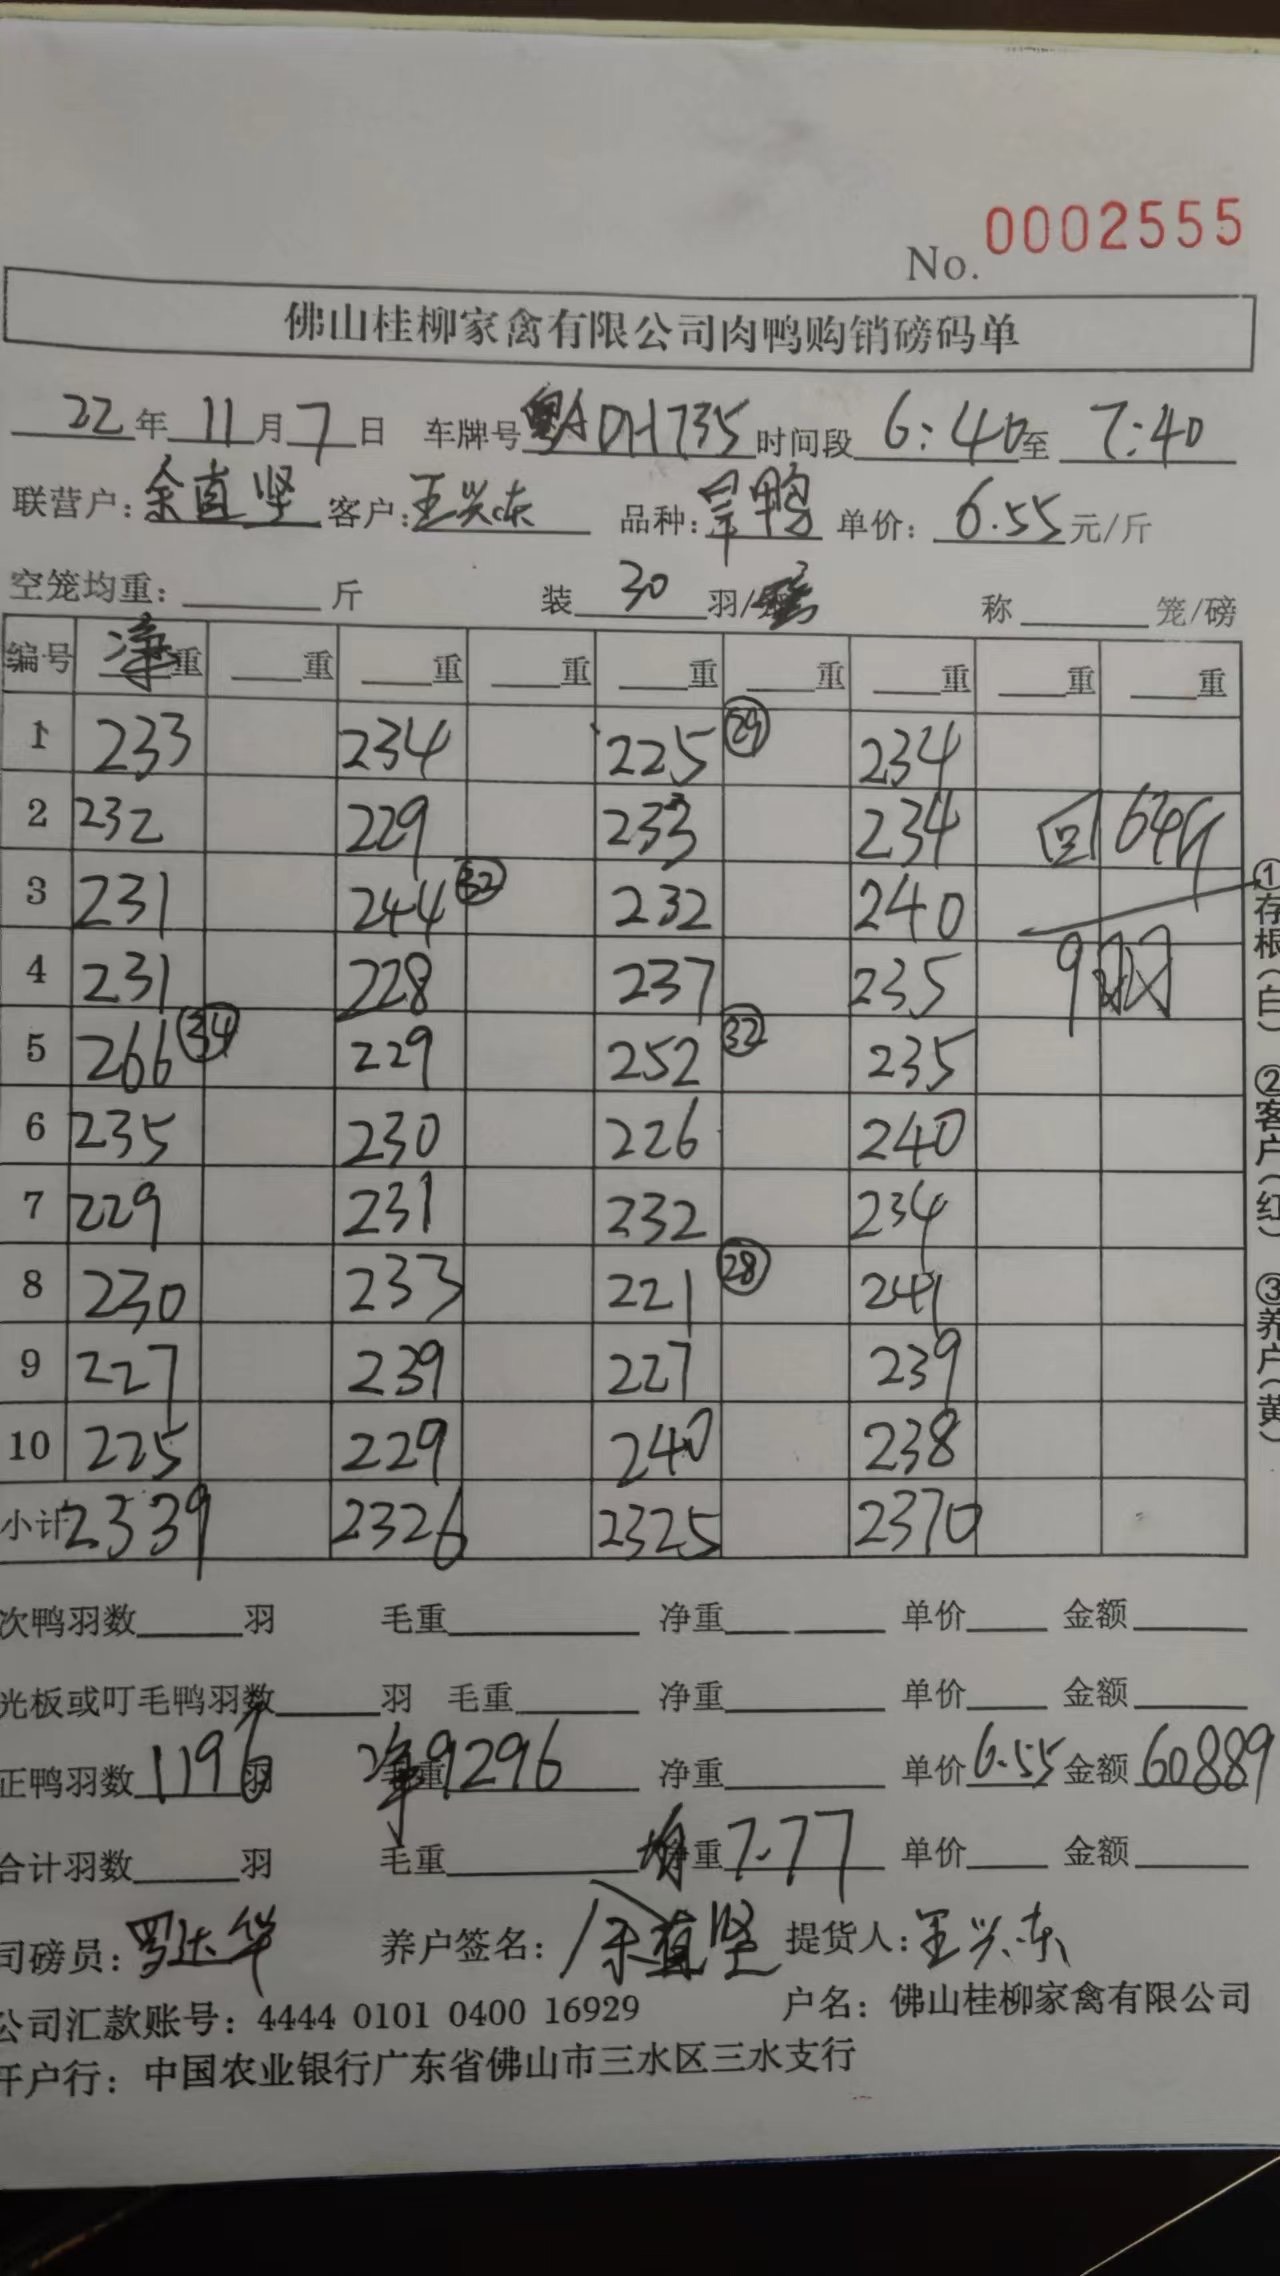 No. 0002555
佛山桂柳家禽有限公司肉鸭购销磅码单
22年11月7日 车牌号粤ADH735时间段6:40至7:40
联营户:余直坚 客户:王兴东 品种: 单价: 6.55元/斤
空笼均重:____斤 装30羽/ 称____笼/磅
编号 净重 重 重 重 重 重 重 重 重
1 233 234 225 ㉙ 234
2 232 229 233 234 回 64斤
3 231 244 ㉜ 232 240
4 231 228 237 235 9羽
5 266 ㉞ 229 252 ㉜ 235
6 235 230 226 240
7 229 231 232 234
8 230 233 221 ㉘ 241
9 227 239 227 239
10 225 229 240 238
小计 2339 2326 2325 2370
①存根(白) ②客户(红) ③养户(黄)
次鸭羽数____羽 毛重____ 净重____ 单价____ 金额____
光板或叮毛鸭羽数____羽 毛重____ 净重____ 单价____ 金额____
正鸭羽数1196羽 净重9296 净重____ 单价6.55 金额60889
合计羽数____羽 毛重____ 均重7.77 单价____ 金额____
司磅员:罗达华 养户签名:余直坚 提货人:王兴东
公司汇款账号: 4444 0101 0400 16929 户名: 佛山桂柳家禽有限公司
开户行: 中国农业银行广东省佛山市三水区三水支行